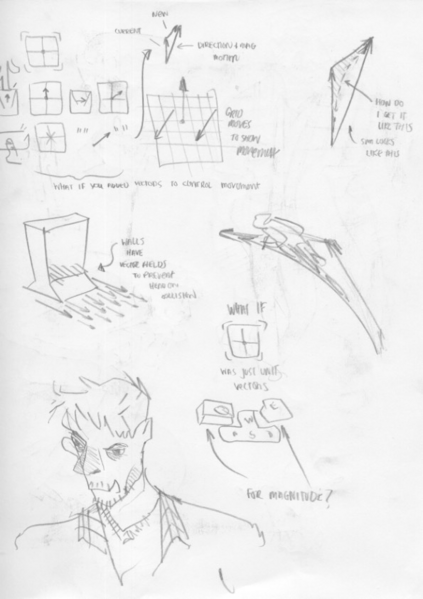 NEW
CURRENT
DIRECTION + MAG
MOTION
GRID
MOVES
TO SHOW
MOVEMENT
HOW DO
I GET IT
LIKE THIS
LIKE THIS
WHAT IF YOU ADDED VECTORS TO CONTROL MOVEMENT
WALLS
HAVE
VECTOR FIELDS
TO PREVENT
COLLISION
WHAT IF
WAS JUST UNIT
VECTORS
Q W E
A S D
FOR MAGNITUDE?